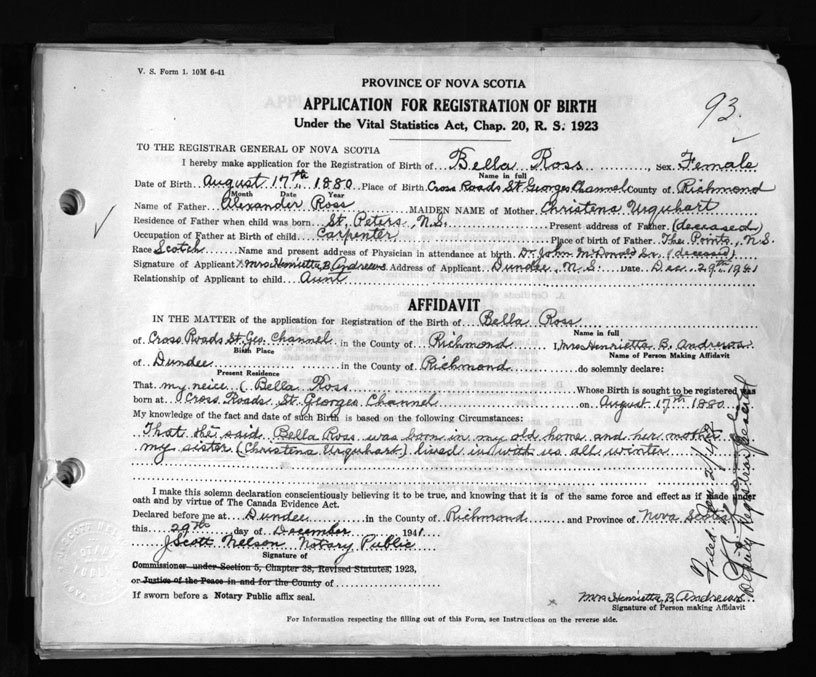 V. S. Form 1. 10M 6-41
PROVINCE OF NOVA SCOTIA
93.
APPLICATION FOR REGISTRATION OF BIRTH
Under the Vital Statistics Act, Chap. 20, R. S. 1923
TO THE REGISTRAR GENERAL OF NOVA SCOTIA
I hereby make application for the Registration of Birth of Bella Ross, Sex Female
Name in full
Date of Birth August 17th 1880 Place of Birth Cross Roads St. Georges Channel County of Richmond
Month Date Year
Name of Father Alexander Ross MAIDEN NAME of Mother Christena Urquhart
Residence of Father when child was born St. Peters, N.S. Present address of Father (deceased)
Occupation of Father at Birth of child Carpenter Place of birth of Father The Points, N.S.
Race Scotch Name and present address of Physician in attendance at birth Dr. John McDonald Sr. (deceased)
Signature of Applicant x Mrs Henrietta B Andrews Address of Applicant Dundee, N.S. Date Dec. 29th 1941
Relationship of Applicant to child Aunt
AFFIDAVIT
IN THE MATTER of the application for Registration of the Birth of Bella Ross
Name in full
of Cross Roads St. Geo. Channel in the County of Richmond I, Mrs Henrietta B. Andrews
Birth Place Name of Person Making Affidavit
of Dundee in the County of Richmond do solemnly declare:
Present Residence
That my neice (Bella Ross Whose Birth is sought to be registered was
born at Cross Roads St. Georges Channel on August 17th 1880
My knowledge of the fact and date of such Birth is based on the following Circumstances:
That the said Bella Ross was born in my old home and her mother
my sister (Christena Urquhart) lived in with us all winter
I make this solemn declaration conscientiously believing it to be true, and knowing that it is of the same force and effect as if made under
oath and by virtue of The Canada Evidence Act.
Declared before me at Dundee in the County of Richmond and Province of Nova Scotia
this 29th day of December 1941
J Scott Nelson Notary Public
Signature of
Commissioner under Section 5, Chapter 38, Revised Statutes, 1923,
or Justice of the Peace in and for the County of
If sworn before a Notary Public affix seal.
x Mrs Henrietta B. Andrews
Signature of Person making Affidavit
For Information respecting the filling out of this Form, see Instructions on the reverse side.
Filed Jan 2/42
Deputy Registrar General